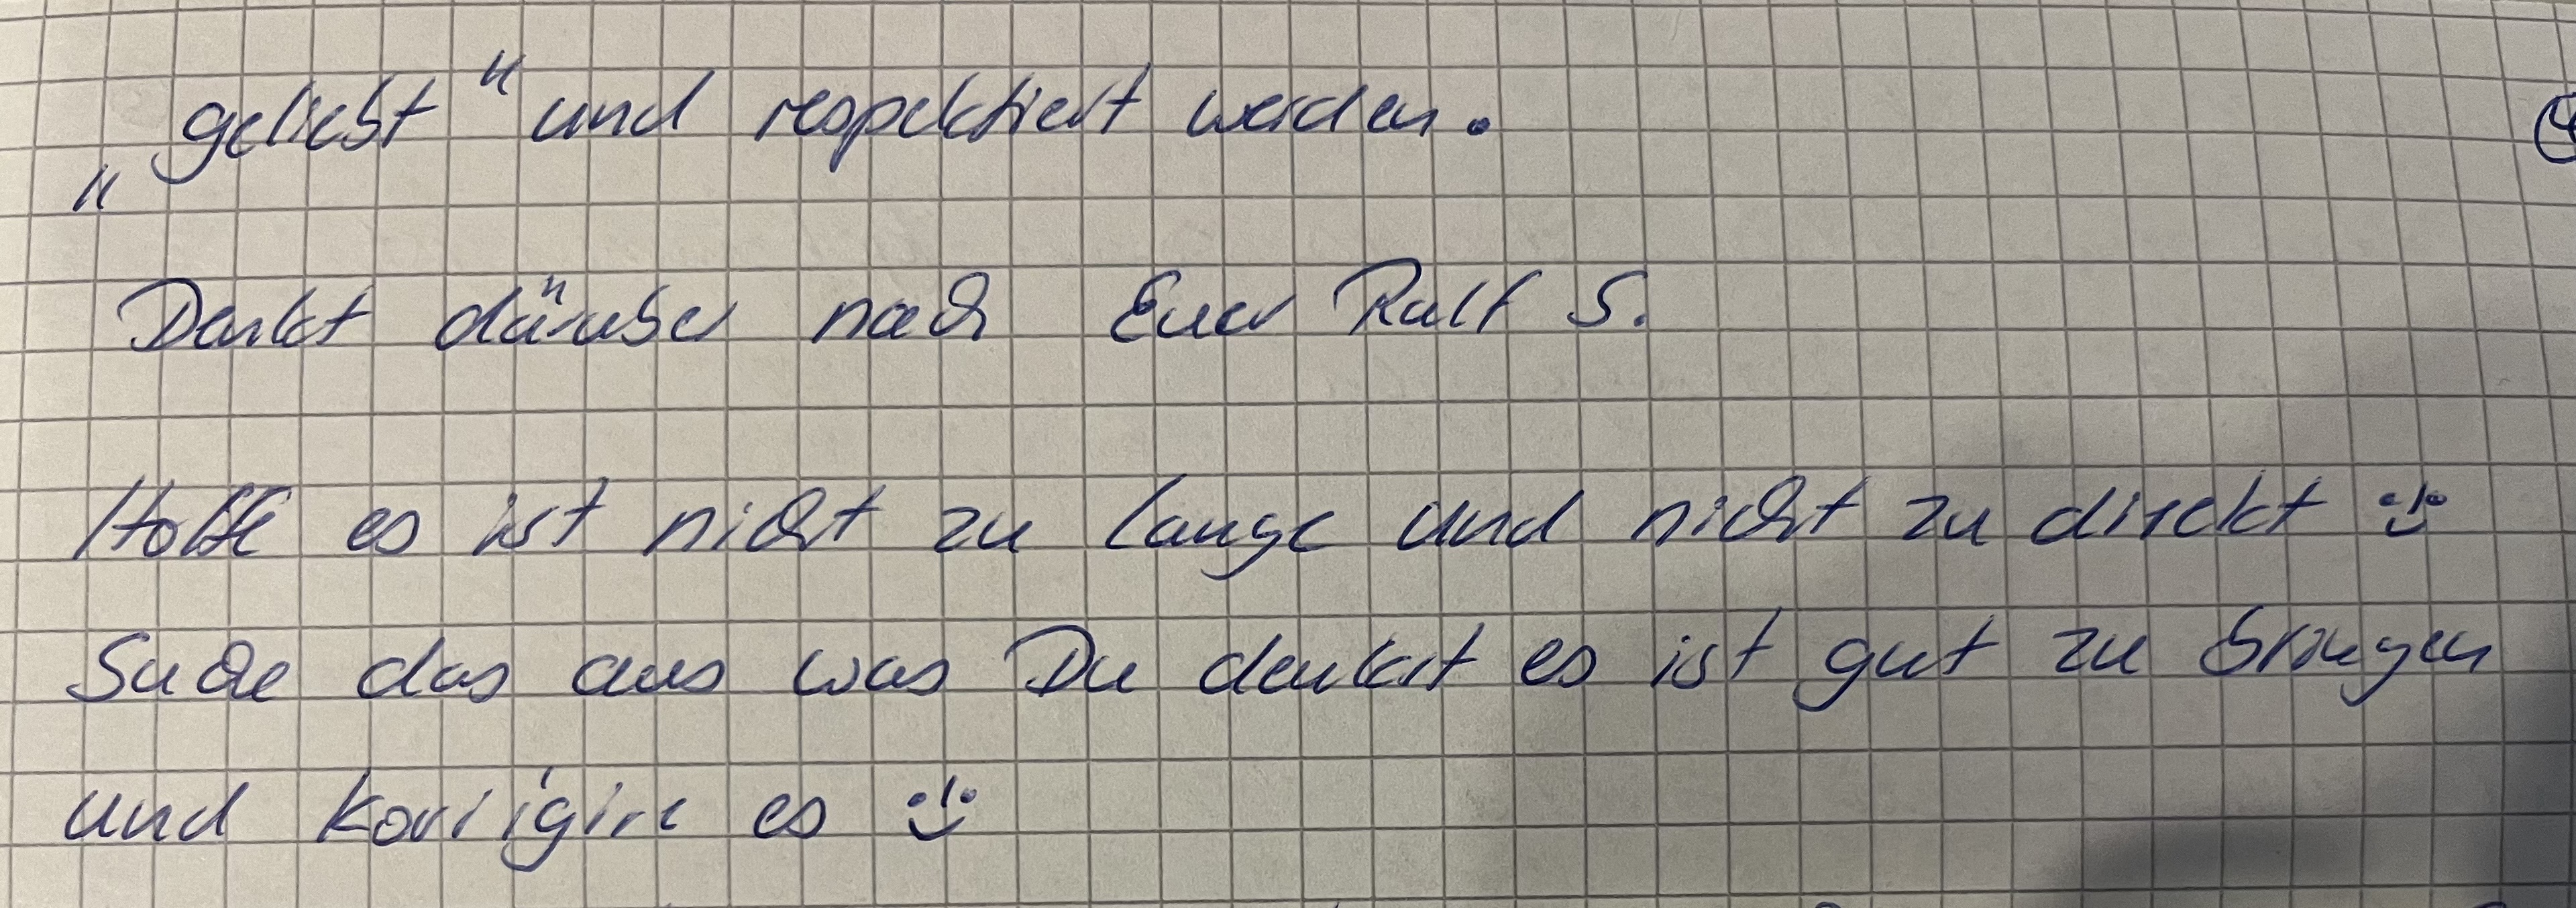 „geliebt" und respektiert werden.
Denkt därüber nach Euer Ralf S.
Hoffe es ist nicht zu lange und nicht zu direkt :-)
Suche das aus was Du denkst es ist gut zu bringen
und korrigire es :-)